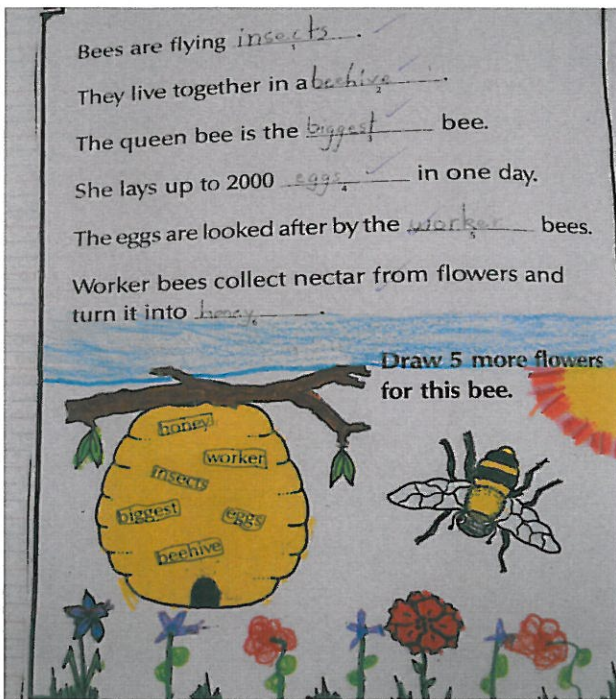 Bees are flying insects.
1
They live together in a beehive.
2
The queen bee is the biggest bee.
3
She lays up to 2000 eggs in one day.
4
The eggs are looked after by the worker bees.
5
Worker bees collect nectar from flowers and
turn it into honey.
6
Draw 5 more flowers
for this bee.
honey
worker
insects
biggest
eggs
beehive